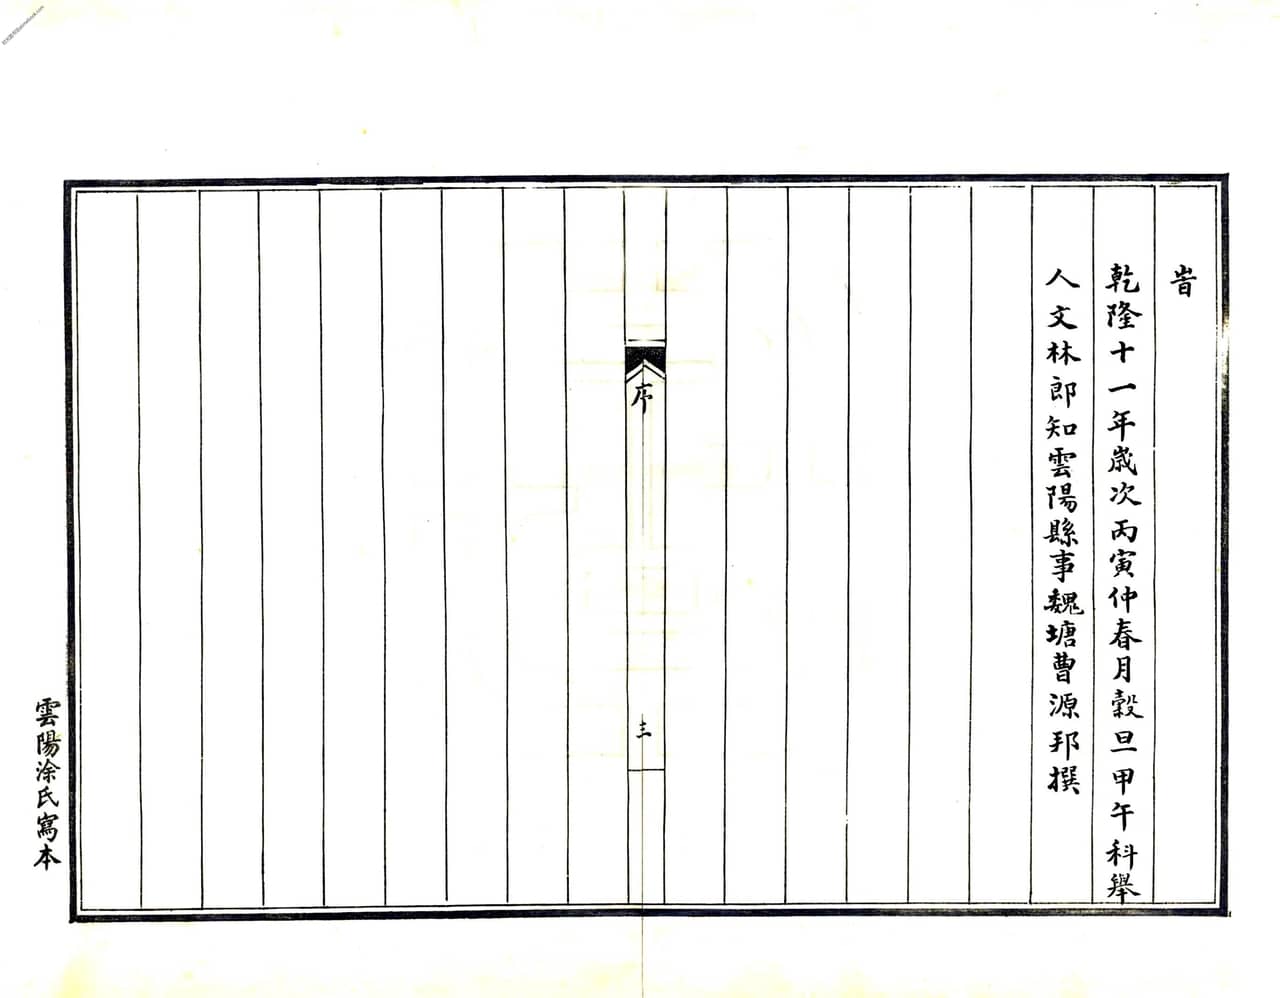 旹
乾隆十一年歲次丙寅仲春月穀旦甲午科舉
人文林郎知雲陽縣事魏塘曹源邦撰
序
三
雲陽涂氏寫本